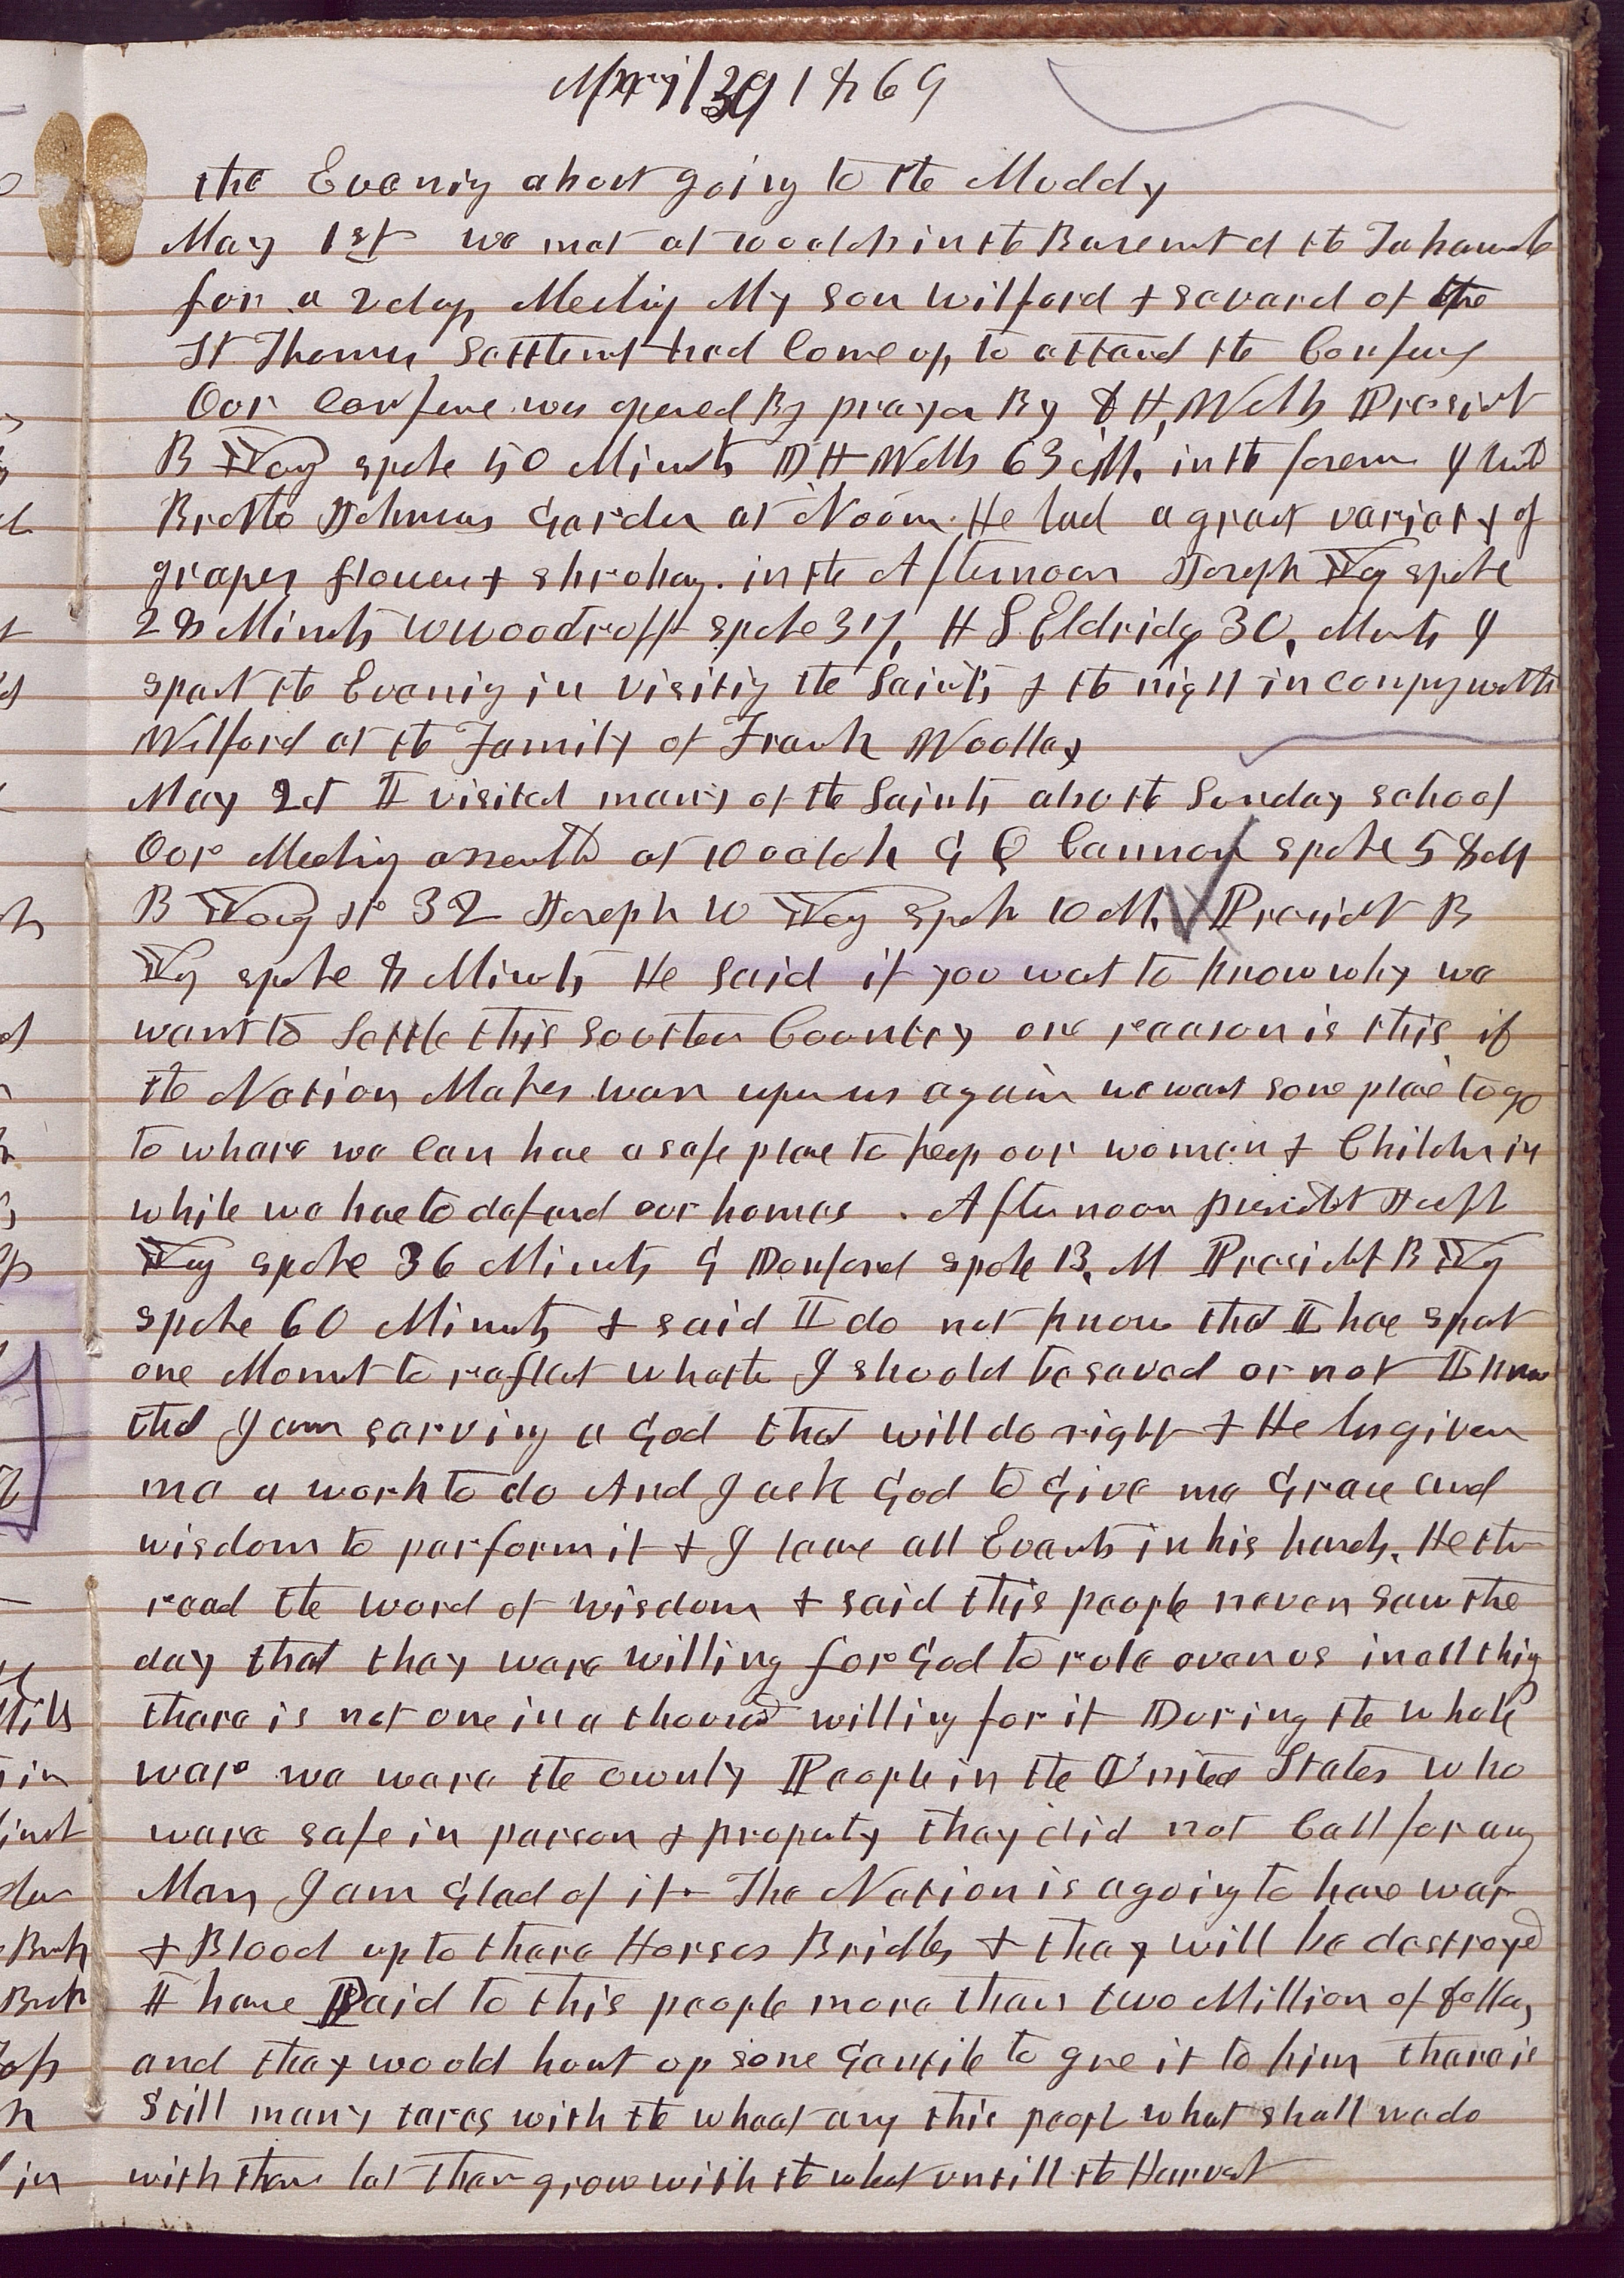 April 30 1869
the Evening about going to the Muddy
May 1st we met at 10 oclok in the Basemt of the Tabanacle
for a 2 day Meeting My son Wilford & sevarel of the
St Thomas Settlemt had Come up to attend the Confer
Our Conferne was opened By prayer By D H, Wells Presidt
B Yog spoke 50 Minuts D H Wells 63 M. in the forenn I visitd
Brother Johnsons Garden at Noon. He had a great variaty of
grapes flowers & shrobry. in the Afternoon Joseph Yg spoke
28 Minuts W Woodruff spoke 37, H S Eldridge 30, Minuts I
spent the Evenig in visitig the Saints & the night in compny with
Wilford at the Family of Frank Woolley
May 2d I visited many of the Saints also the Sunday school
Our Meeting assembld at 10 oclok G Q Cannon spoke 58 M
B Yog st 32 Joseph W Yog spok 10 M. Presidt B
Yg spoke 8 Minuts He said if you wat to know why we
want to Settle this Southern Country one reason is this if
the Nation Makes warr upon us again we want some place to go
to whare we Can hae a safe place to keep our women & Childn in
while we hae to defend our homes. Afternoon presidt Joseph
Yog spoke 36 Minuts & Danford spoke 13, M Presidt B Yg
spoke 60 Minuts & said I do not know that I hae spent
one Momt to reflect whethr I should be saved or not I know
that I am serving a God that will do right & He has given
me a work to do And I ask God to Give me Grace and
wisdom to perform it & I leave all Events in his hands. He then
read the word of wisdom & said this people never saw the
day that thay ware willing for God to rule over us in all thig
thare is not one in a thousand willing for it During the whole
war we ware the ownly People in the United States who
ware safe in person & property thay did not Call for any
Men, I am Glad of it. The Nation is a going to have war
& Blood up to thare Horses Bridles & thay will be destroyed
I have Paid to this people more than two Million of dollars
and thay would hunt up some Gentile to give it to him thare is
Still many tares with the wheat amg this peopl what shall we do
with them let them grow with the wheat untill the Harvest